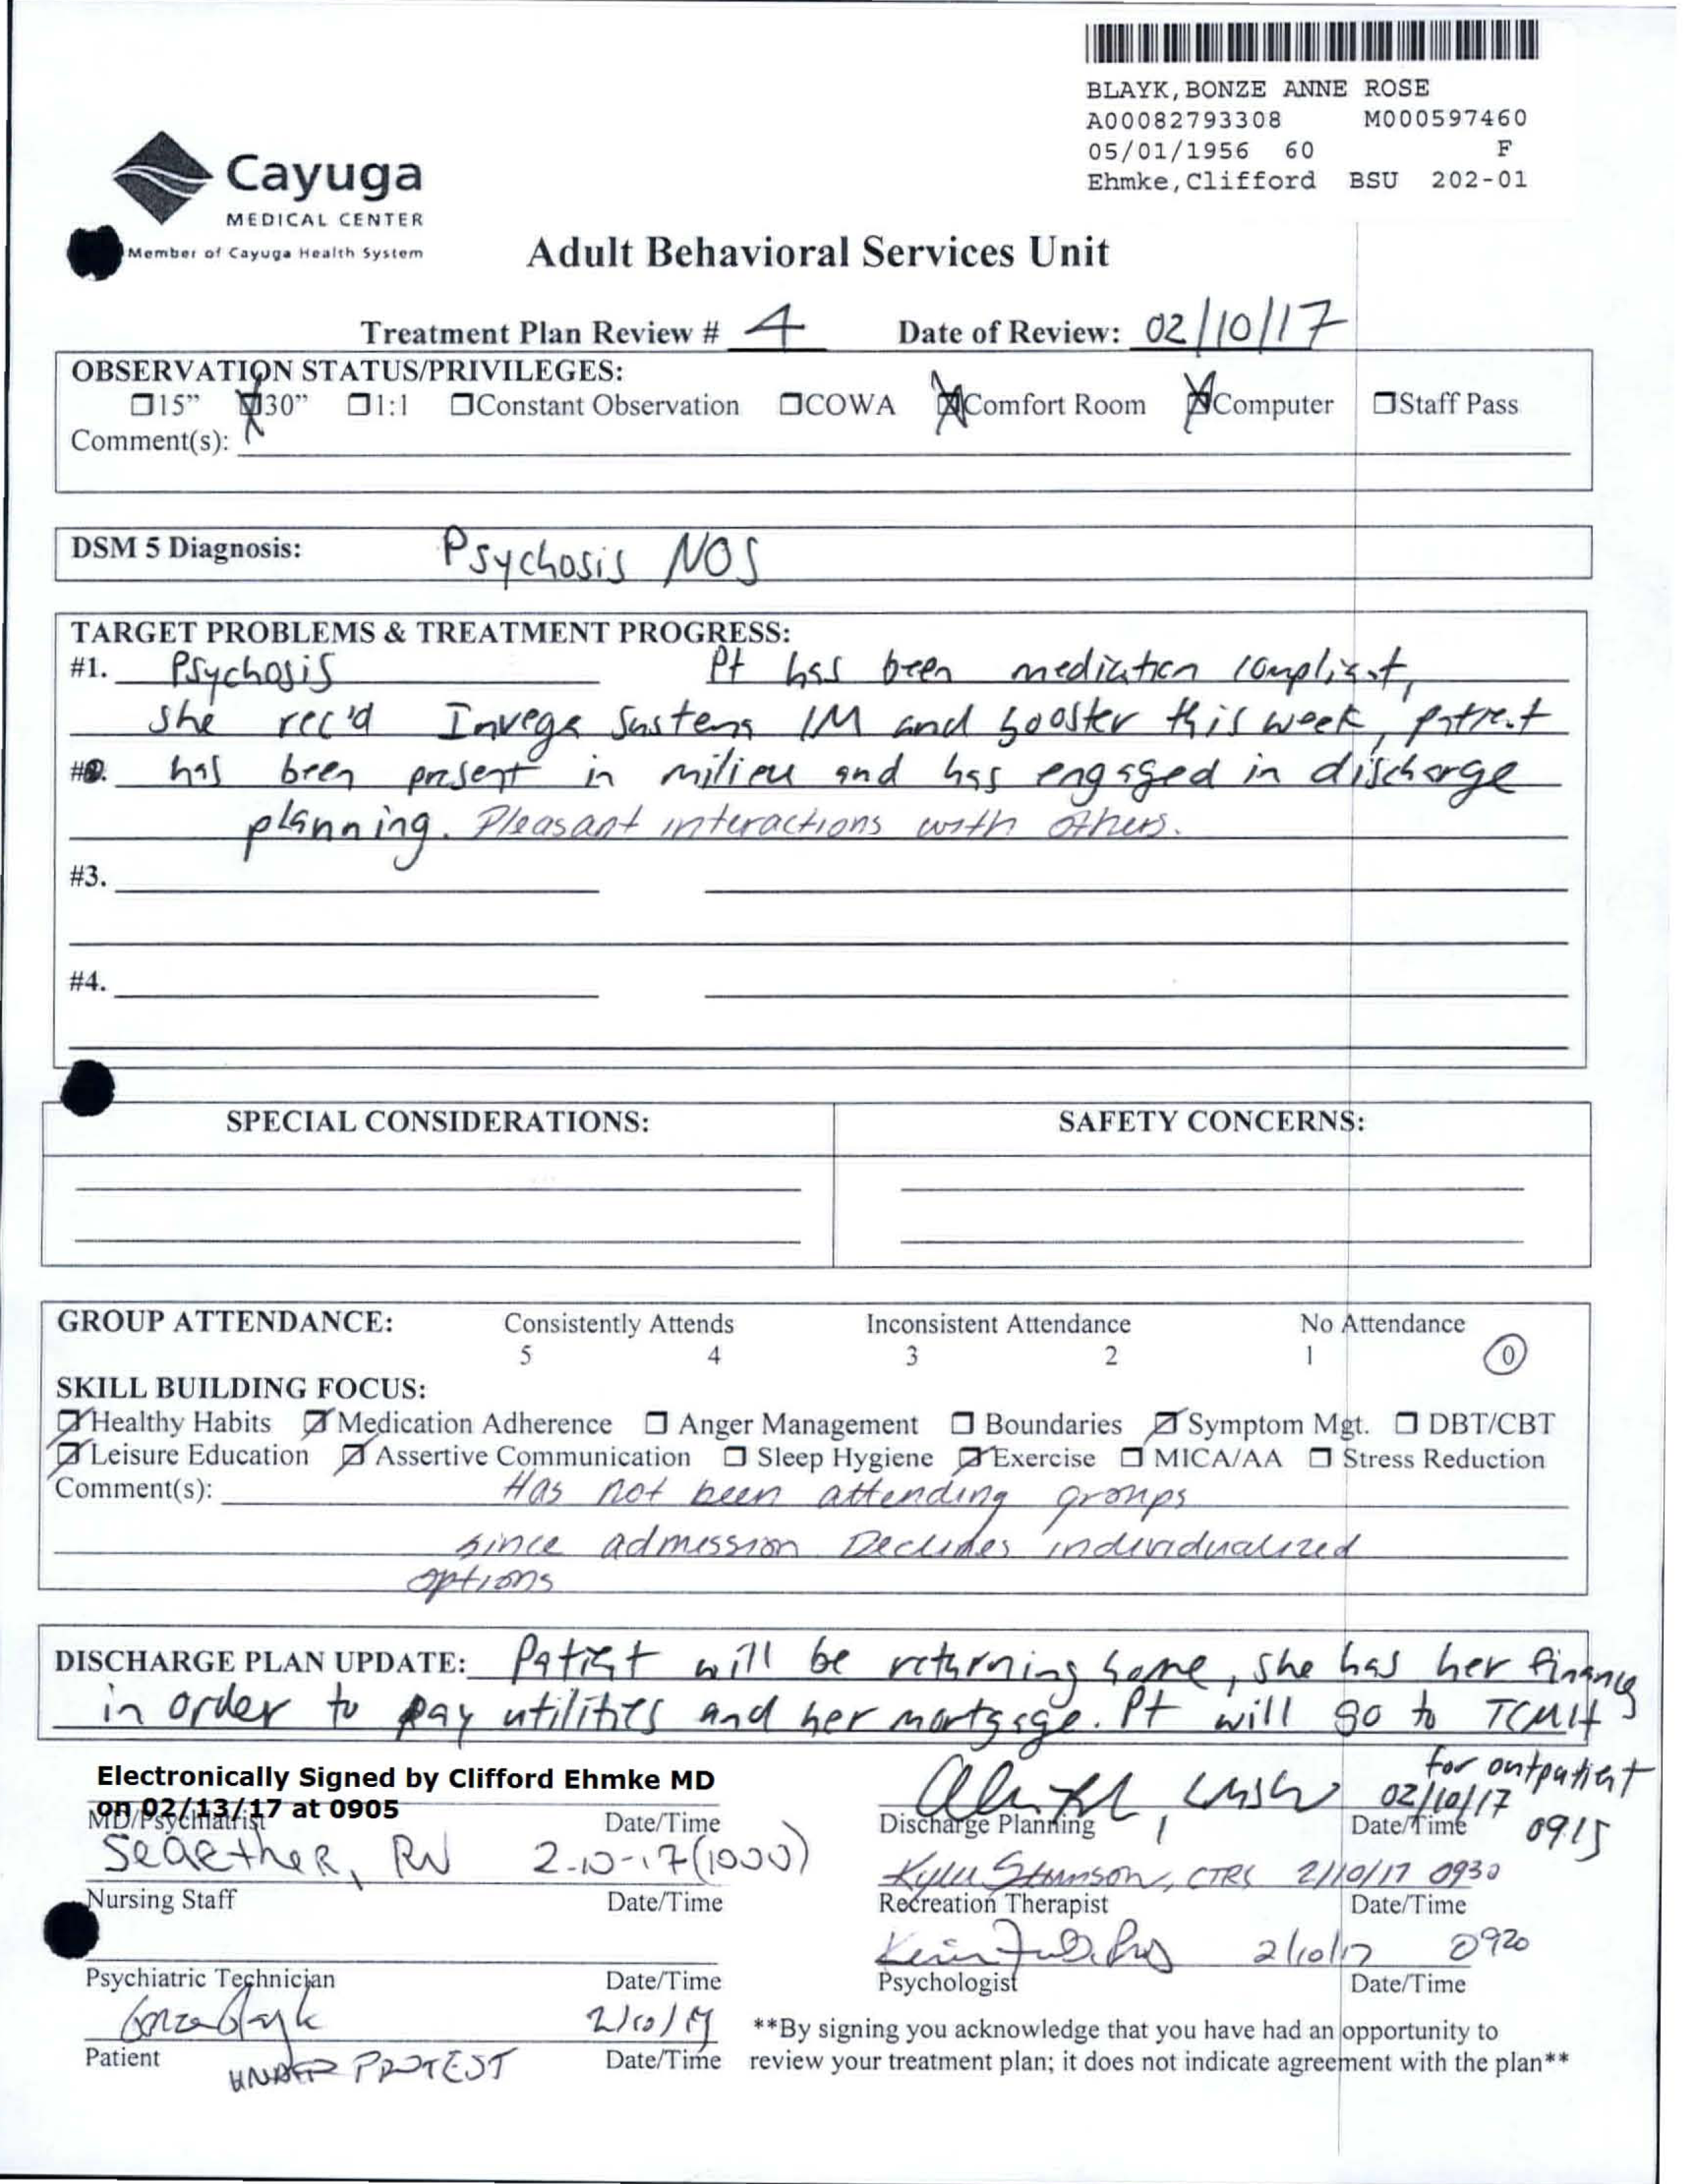 BLAYK,BONZE ANNE ROSE
A00082793308 M000597460
05/01/1956 60 F
Ehmke,Clifford BSU 202-01
Cayuga
MEDICAL CENTER
Member of Cayuga Health System
Adult Behavioral Services Unit
Treatment Plan Review # 4 Date of Review: 02/10/17
OBSERVATION STATUS/PRIVILEGES:
☐15" ☒30" ☐1:1 ☐Constant Observation ☐COWA ☒Comfort Room ☒Computer ☐Staff Pass
Comment(s):
DSM 5 Diagnosis: Psychosis NOS
TARGET PROBLEMS & TREATMENT PROGRESS:
#1. Psychosis Pt has been medication compliant,
she rec'd Invega Sustena IM and booster this week, patient
#2. has been present in milieu and has engaged in discharge
planning. Pleasant interactions with others.
#3.
#4.
SPECIAL CONSIDERATIONS: SAFETY CONCERNS:
GROUP ATTENDANCE: Consistently Attends Inconsistent Attendance No Attendance
5 4 3 2 1 0
SKILL BUILDING FOCUS:
☑Healthy Habits ☑Medication Adherence ☐ Anger Management ☐ Boundaries ☑Symptom Mgt. ☐ DBT/CBT
☑Leisure Education ☑Assertive Communication ☐ Sleep Hygiene ☑Exercise ☐ MICA/AA ☐ Stress Reduction
Comment(s): Has not been attending groups
since admission Declines individualized
options
DISCHARGE PLAN UPDATE: Patient will be returning home, she has her finances
in order to pay utilities and her mortgage. Pt will go to TCMH
for outpatient
Electronically Signed by Clifford Ehmke MD
on 02/13/17 at 0905
02/10/17 0915
MD/Psychiatrist Date/Time Discharge Planning Date/Time
Seaether, RN 2-10-17(1000) CTRS 2/10/17 0930
Nursing Staff Date/Time Recreation Therapist Date/Time
2/10/17 0920
Psychiatric Technician Date/Time Psychologist Date/Time
Bonze Blayk 2/10/17 **By signing you acknowledge that you have had an opportunity to
Patient UNDER PROTEST Date/Time review your treatment plan; it does not indicate agreement with the plan**